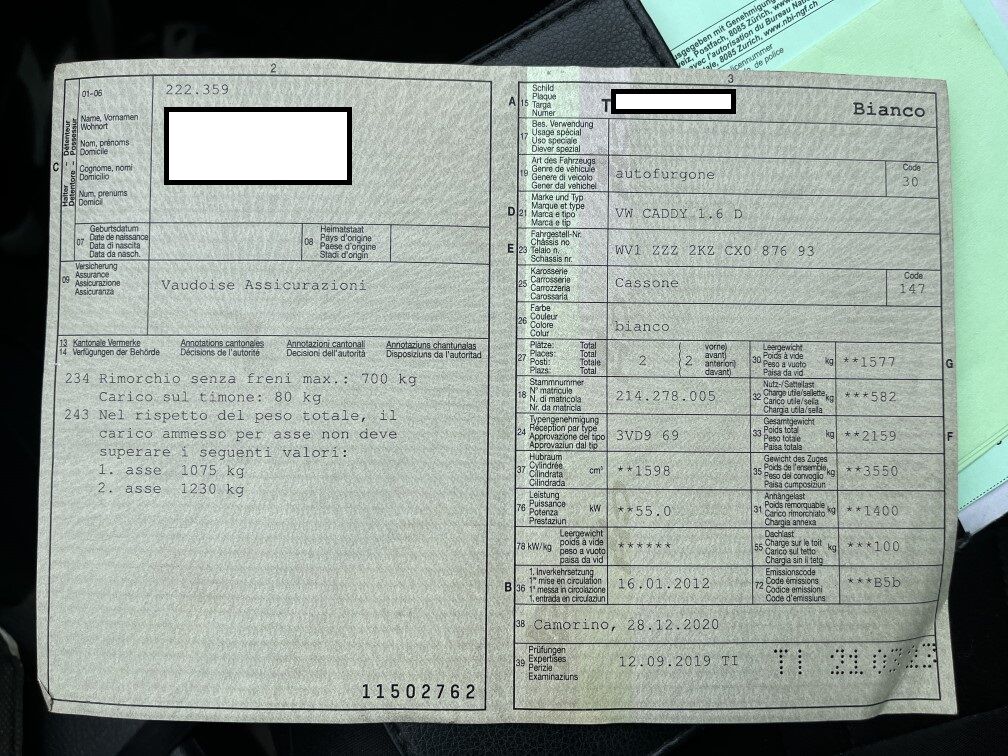 usgegeben mit Genehmigung
eiz, Postfach, 8085 Zürich, www.nb
avec l'autorisation du Bureau Nation
tale, 8085 Zurich, www.nbi-ngf.ch
olicennummer
de police
2
01-06
222.359
Halter – Détenteur
Detentore – Possessur
C
Name, Vornamen
Wohnort
Nom, prénoms
Domicile
Cognome, nomi
Domicilio
Num, prenums
Domicil
07
Geburtsdatum
Date de naissance
Data di nascita
Data da nasch.
08
Heimatstaat
Pays d'origine
Paese d'origine
Stadi d'origin
09
Versicherung
Assurance
Assicurazione
Assicuranza
Vaudoise Assicurazioni
13 Kantonale Vermerke Annotations cantonales Annotazioni cantonali Annotaziuns chantunalas
14 Verfügungen der Behörde Décisions de l'autorité Decisioni dell'autorità Disposiziuns da l'autoritad
234 Rimorchio senza freni max.: 700 kg
Carico sul timone: 80 kg
243 Nel rispetto del peso totale, il
carico ammesso per asse non deve
superare i seguenti valori:
1. asse 1075 kg
2. asse 1230 kg
11502762
3
A 15
Schild
Plaque
Targa
Numer
T
Bianco
17
Bes. Verwendung
Usage spécial
Uso speciale
Diever spezial
19
Art des Fahrzeugs
Genre de véhicule
Genere di veicolo
Gener dal vehichel
autofurgone
Code
30
D 21
Marke und Typ
Marque et type
Marca e tipo
Marca e tip
VW CADDY 1.6 D
E 23
Fahrgestell-Nr.
Châssis no
Telaio n.
Schassis nr.
WV1 ZZZ 2KZ CX0 876 93
25
Karosserie
Carrosserie
Carrozzeria
Carossaria
Cassone
Code
147
26
Farbe
Couleur
Colore
Colur
bianco
27
Plätze: Total
Places: Total
Posti: Totale
Plazs: Total
2
2
vorne)
avant)
anteriori)
davant)
30
Leergewicht
Poids à vide
Peso a vuoto
Paisa da vid
kg
**1577
G
18
Stammnummer
N° matricule
N. di matricola
Nr. da matricla
214.278.005
32
Nutz-/Sattellast
Charge utile/sellette
Carico utile/sella
Chargia utila/sella
kg
***582
24
Typengenehmigung
Réception par type
Approvazione del tipo
Approvaziun dal tip
3VD9 69
33
Gesamtgewicht
Poids total
Peso totale
Paisa totala
kg
**2159
F
37
Hubraum
Cylindrée
Cilindrata
Cilindrada
cm³
**1598
35
Gewicht des Zuges
Poids de l'ensemble
Peso del convoglio
Paisa cumposiziun
kg
**3550
76
Leistung
Puissance
Potenza
Prestaziun
kW
**55.0
31
Anhängelast
Poids remorquable
Carico rimorchiato
Chargia annexa
kg
**1400
78 kW/kg
Leergewicht
poids à vide
peso a vuoto
paisa da vid
******
55
Dachlast
Charge sur le toit
Carico sul tetto
Chargia sin il tetg
kg
***100
B 36
1. Inverkehrsetzung
1re mise en circulation
1a messa in circolazione
1. entrada en circulaziun
16.01.2012
72
Emissionscode
Code émissions
Codice emissioni
Code d'emissiuns
***B5b
38
Camorino, 28.12.2020
39
Prüfungen
Expertises
Perizie
Examinaziuns
12.09.2019 TI
TI 210323